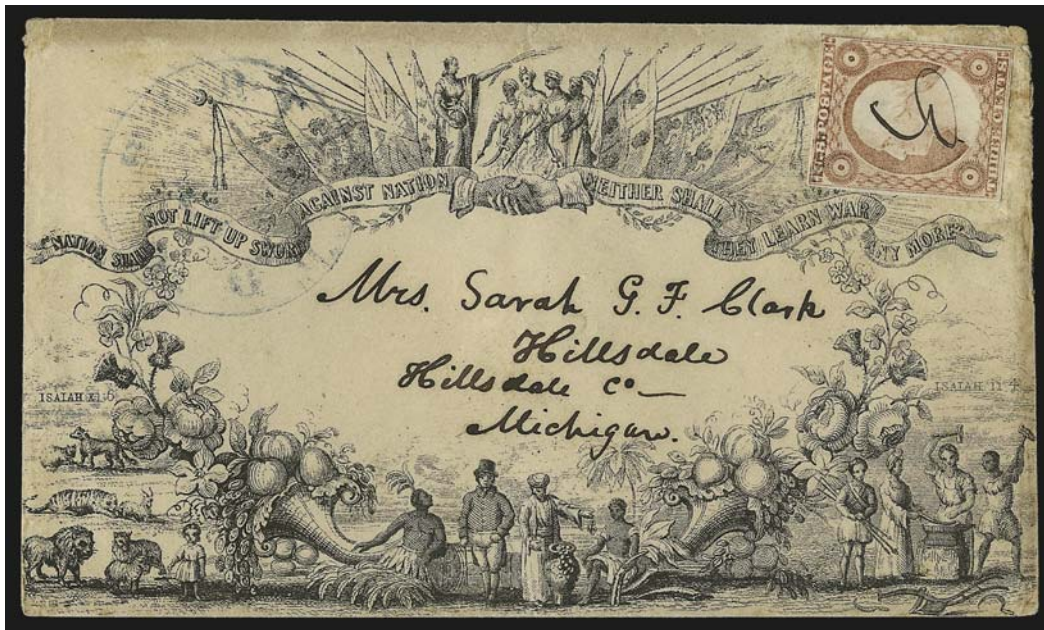 U.S. POSTAGE
THREE CENTS
"NATION SHALL NOT LIFT UP SWORD AGAINST NATION NEITHER SHALL THEY LEARN WAR ANY MORE"
Mrs. Sarah G. F. Clark
Hillsdale
Hillsdale Co
Michigan.
ISAIAH XI.6
ISAIAH II.4